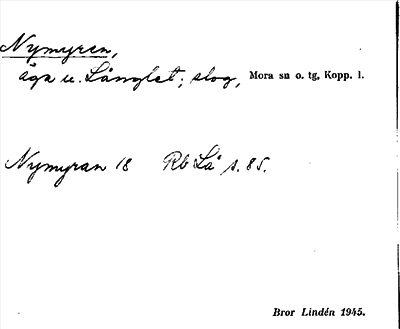 Nymyren,
äga u. Långlet; slog, Mora sn o. tg, Kopp. l.
Nymyran 18 Rb Lå s. 85.
Bror Lindén 1945.